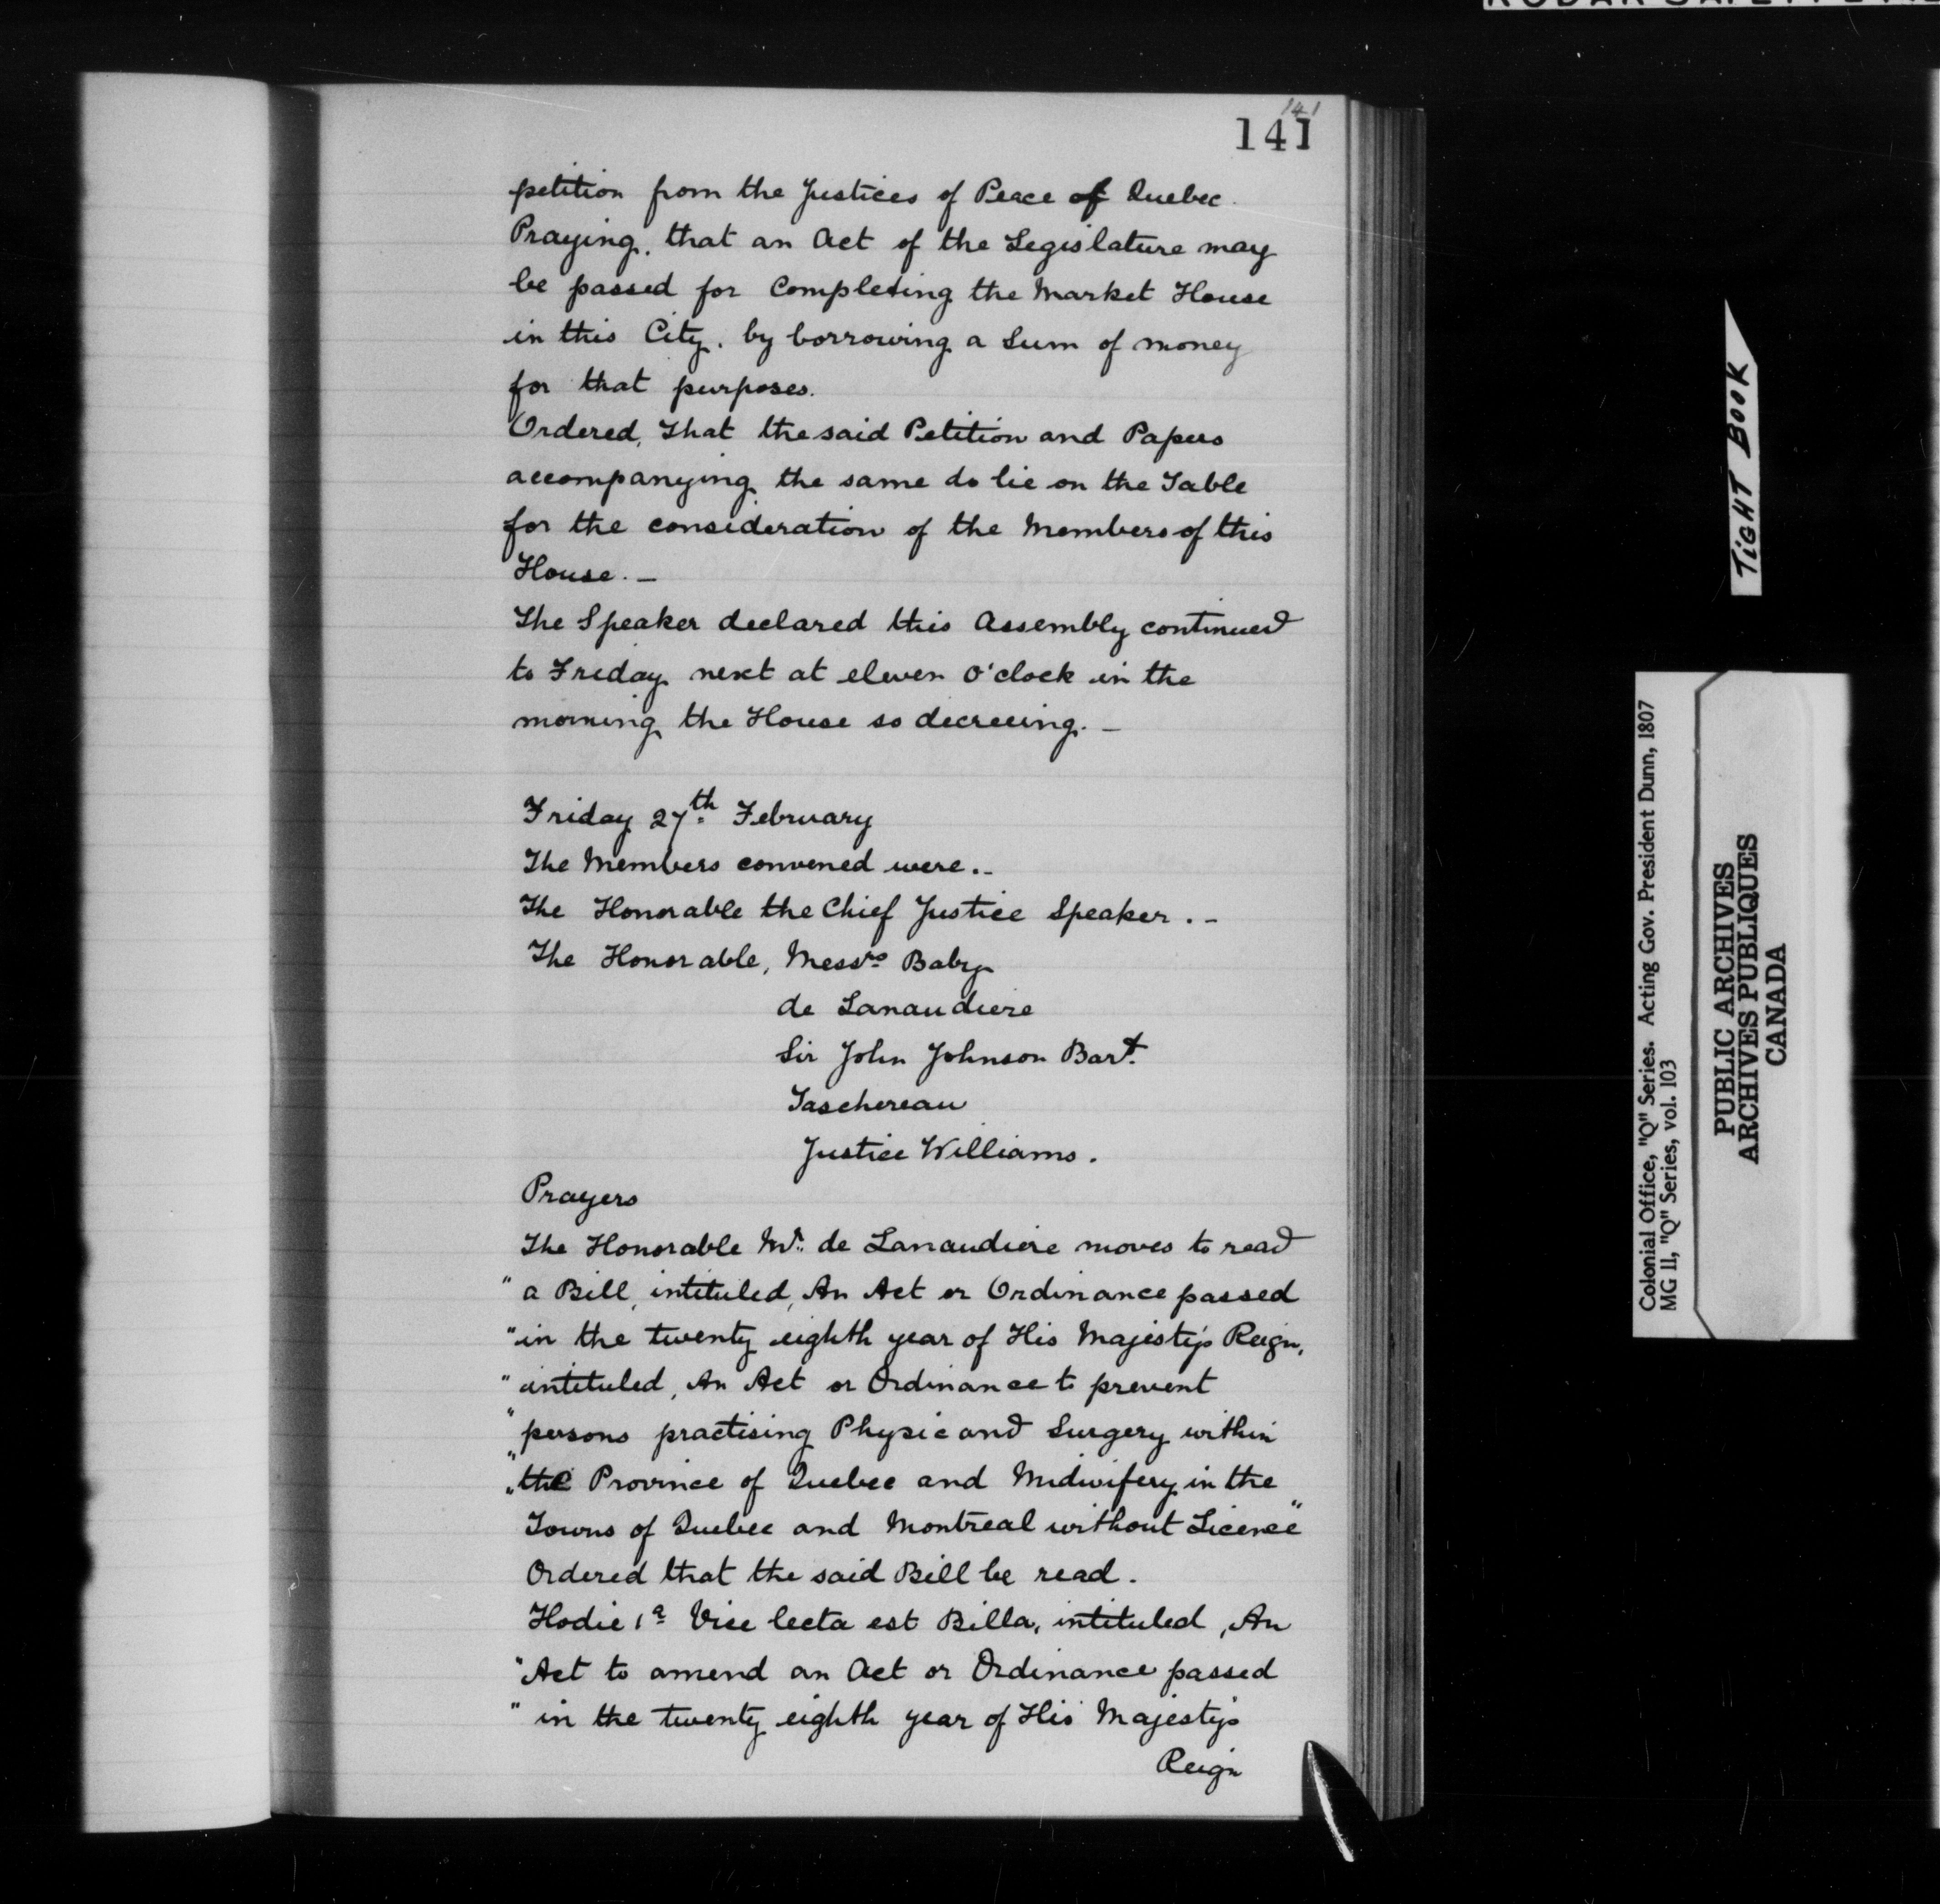 141
141
petition from the Justices of Peace of Quebec.
Praying, that an Act of the Legislature may
be passed for Completing the Market House
in this City, by borrowing a Sum of money
for that purposes.
Ordered, That the said Petition and Papers
accompanying the same do lie on the Table
for the consideration of the Members of this
House. –
The Speaker declared this Assembly continued
to Friday next at eleven O'clock in the
morning the House so decreeing. –
Friday 27th February
The Members convened were. –
The Honorable the Chief Justice Speaker. –
The Honorable, Messrs Baby
de Lanaudiere
Sir John Johnson Bart.
Taschereau
Justice Williams.
Prayers
The Honorable Mr. de Lanaudiere moves to read
" a Bill, intituled, An Act or Ordinance passed
" in the twenty eighth year of His Majesty's Reign,
" intituled, An Act or Ordinance to prevent
" persons practising Physic and Surgery within
" the Province of Quebec and Midwifery in the
" Towns of Quebec and Montreal without Licence"
Ordered that the said Bill be read.
Hodie 1a Vice lecta est Billa, intituled, An
" Act to amend an Act or Ordinance passed
" in the twenty eighth year of His Majesty's
Reign
TIGHT BOOK
Colonial Office, "Q" Series. Acting Gov. President Dunn, 1807
MG 11, "Q" Series, vol. 103
PUBLIC ARCHIVES
ARCHIVES PUBLIQUES
CANADA